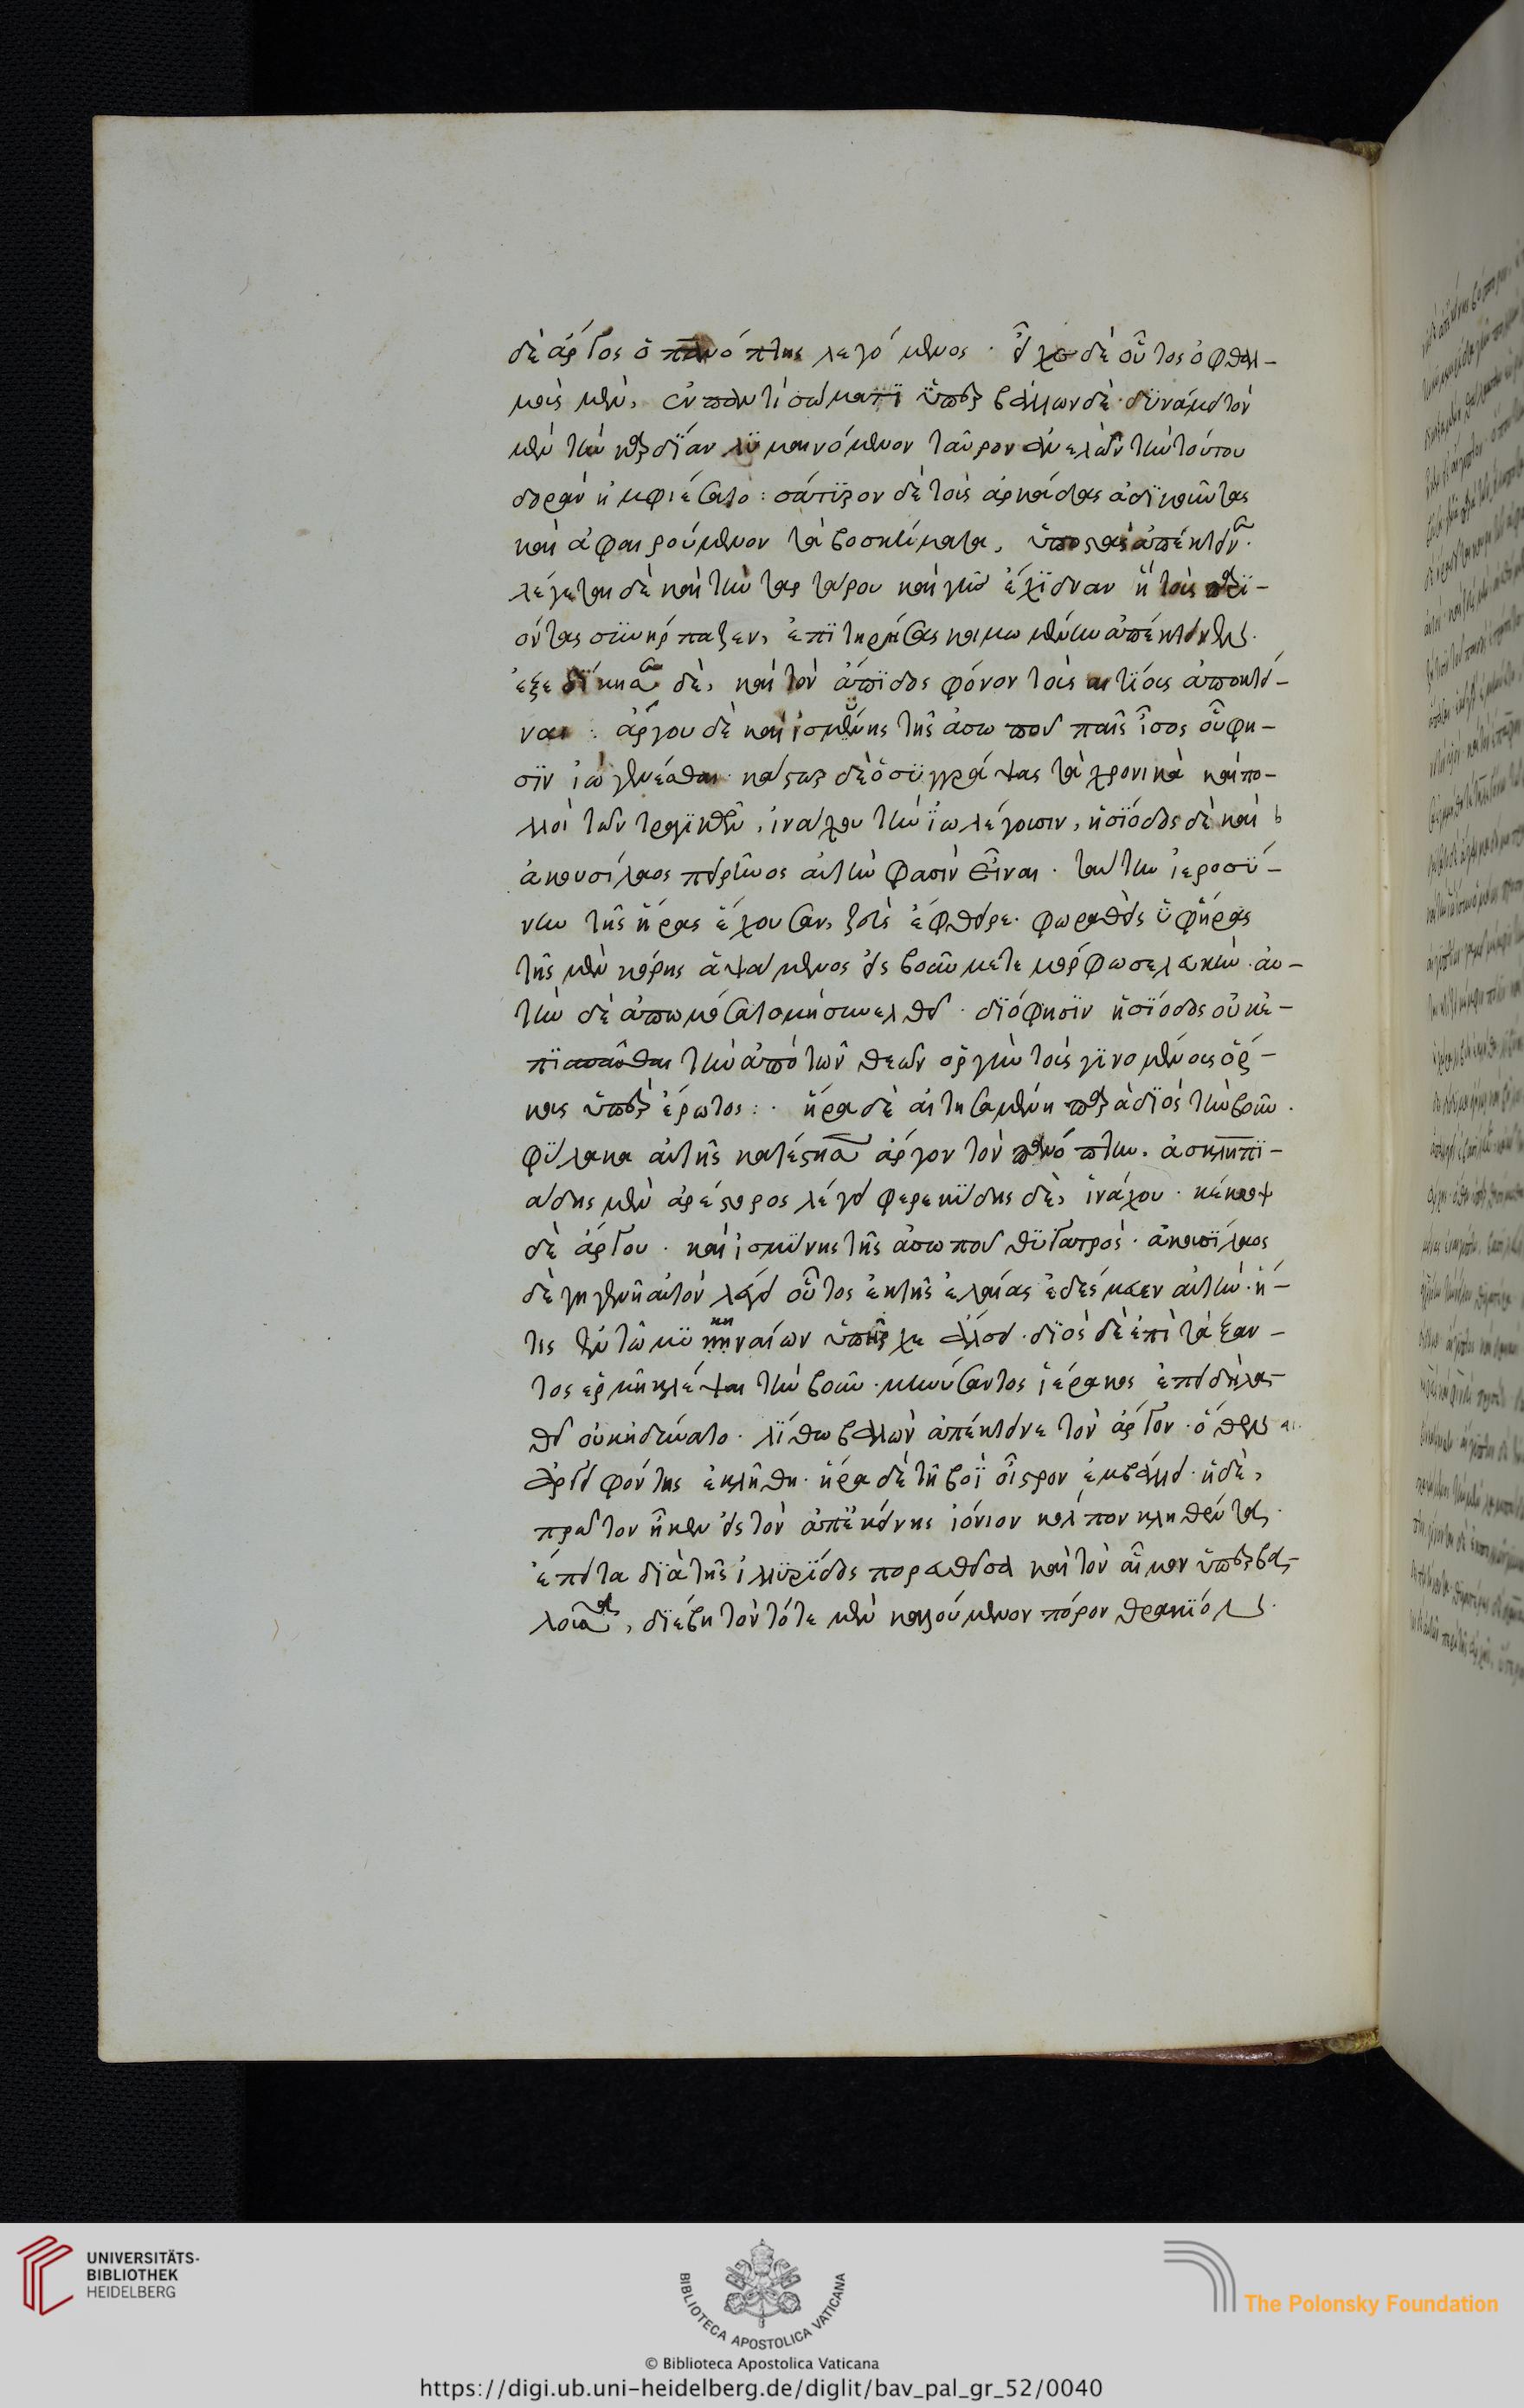 δὲ ἄργος ὁ πανόπτης λεγόμενος · εἶχε δὲ οὗτος ὀφθαλ-
μοὺς μὲν, ἐν παντὶ σώματι ὑπερβάλλων δὲ δυνάμει τὸν
μὲν τὴν ἀρκαδίαν λυμαινόμενον ταῦρον ἀνελὼν τὴν τούτου
δορὰν ἠμφιέσατο : σάτυρον δὲ τοὺς ἀρκάδας ἀδικοῦντας
καὶ ἀφαιρούμενον τὰ βοσκήματα, ὑποστὰς ἀπέκτεινε ·
λέγεται δὲ καὶ τὴν ταρτάρου καὶ γῆς ἔχιδναν ἣ τοὺς παρι-
όντας συνήρπαζεν, ἐπιτηρήσας κοιμωμένην ἀπέκτεινεν ·
ἐξεδίκησε δὲ, καὶ τὸν ἄπιδος φόνον τοὺς αἰτίους ἀποκτεί-
νας : ἄργου δὲ καὶ ἰσμήνης τῆς ἀσωποῦ παῖς ἶσος οὗ φη-
σὶν ἰὼ γενέσθαι · κάστωρ δὲ ὁ συγγράψας τὰ χρονικὰ καὶ πο-
λλοὶ τῶν τραγικῶν, ἰνάχου τὴν ἰὼ λέγουσιν, ἡσίοδος δὲ καὶ
ἀκουσίλαος πειρῆνος αὐτὴν φασὶν εἶναι · ταύτην ἱεροσύ-
νην τῆς ἥρας ἔχουσαν, ζεὺς ἔφθειρε · φωραθεὶς ὑφ᾽ ἥρας
τῆς μὲν κόρης ἁψάμενος εἰς βοῦν μετεμόρφωσε λευκὴν · αὐ-
τὴν δὲ ἀπωμόσατο μὴ συνελθεῖν · διό φησιν ἡσίοδος οὐκ ἐ-
πισπᾶσθαι τὴν ἀπὸ τῶν θεῶν ὀργὴν τοὺς γινομένους ὅρ-
κους ὑπὲρ ἔρωτος : · ἥρα δὲ αἰτησαμένη παρὰ διὸς τὴν βοῦν ·
φύλακα αὐτῆς κατέστησεν ἄργον τὸν πανόπτην · ἀσκληπι-
άδης μὲν ἀρέστορος λέγει φερεκύδης δὲ, ἰνάχου · κέκροψ
δὲ ἄργου · καὶ ἰσμήνης τῆς ἀσωποῦ θυγατρός · ἀκουσίλαος
δὲ γηγενῆ αὐτὸν λέγει οὗτος ἐκ τῆς ἐλαίας ἐδέσμευεν αὐτὴν · ἥ-
τις ἐν τῷ μυκηναίων ὑπῆρχεν ἄλσει · διὸς δὲ ἐπιτάξαν-
τος ἑρμῇ κλέψαι τὴν βοῦν · μηνύσαντος ἱέρακος ἐπειδὴ λα-
θεῖν οὐκ ἠδύνατο · λίθῳ βαλὼν ἀπέκτεινε τὸν ἄργον · ὅθεν
ἀργειφόντης ἐκλήθη · ἥρα δὲ τῇ βοῒ οἶστρον ἐμβάλλει · ἡ δὲ,
πρῶτον ἧκεν εἰς τὸν ἀπ᾽ ἐκείνης ἰόνιον κόλπον κληθέντα ·
ἔπειτα διὰ τῆς ἰλλυρίδος πορευθεῖσα καὶ τὸν αἷμον ὑπερβα-
λοῦσα, διέβη τὸν τότε μὲν καλούμενον πόρον θρᾴκιον ·
UNIVERSITÄTS-
BIBLIOTHEK
HEIDELBERG
BIBLIOTECA APOSTOLICA VATICANA
The Polonsky Foundation
© Biblioteca Apostolica Vaticana
https://digi.ub.uni-heidelberg.de/diglit/bav_pal_gr_52/0040